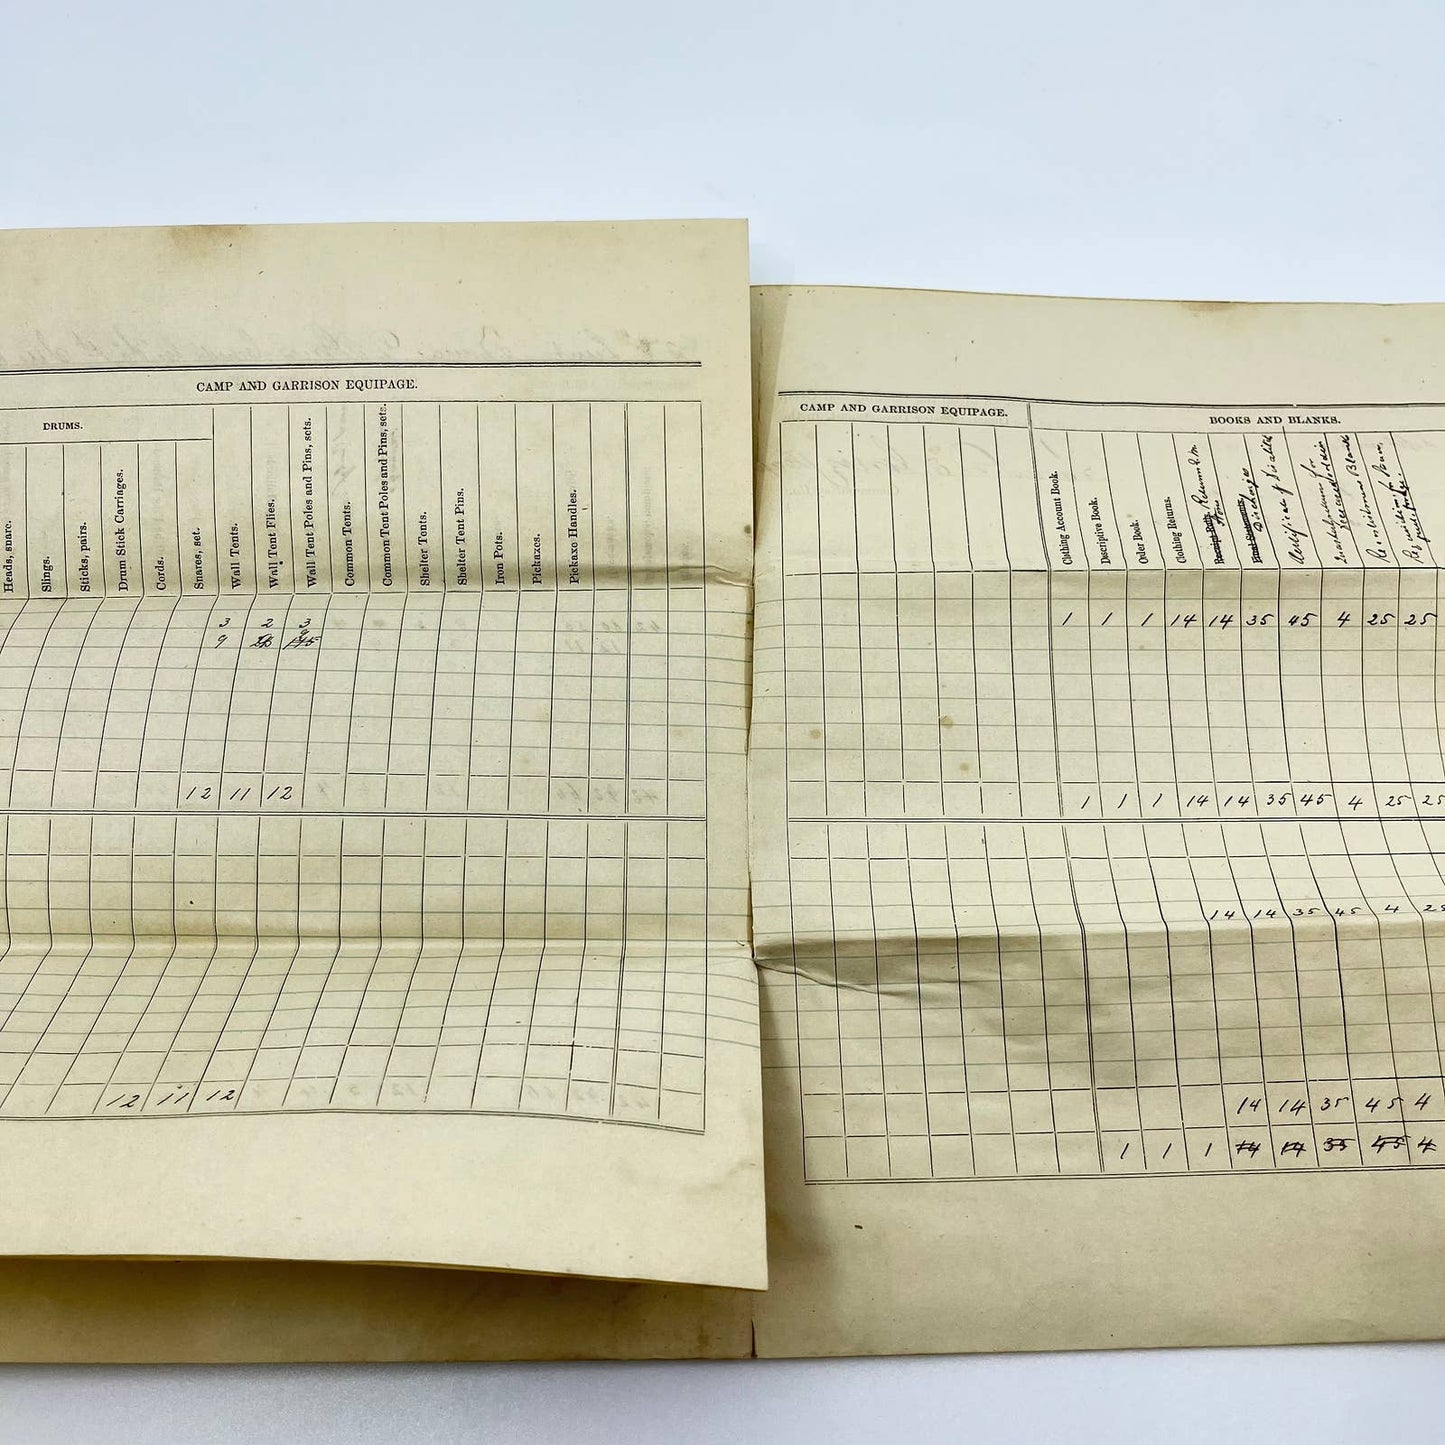 CAMP AND GARRISON EQUIPAGE.
DRUMS.
Heads, snare.
Slings.
Sticks, pairs.
Drum Stick Carriages.
Cords.
Snares, set.
Wall Tents.
Wall Tent Flies.
Wall Tent Poles and Pins, sets.
Common Tents.
Common Tent Poles and Pins, sets.
Shelter Tents.
Shelter Tent Pins.
Iron Pots.
Pickaxes.
Pickaxe Handles.
3 2 3
9 9
12 11 12
12 11 12
CAMP AND GARRISON EQUIPAGE.
BOOKS AND BLANKS.
Clothing Account Book.
Descriptive Book.
Order Book.
Clothing Returns.
Receipt Rolls.
Final Statements.
Discharges
Certificate of Disability
for
deceased soldier
Blanks
Requisition for
1 1 1 14 14 35 45 4 25 25
1 1 1 14 14 35 45 4 25 25
14 14 35 45 4 25
14 14 35 45 4
1 1 1 14 14 35 45 4